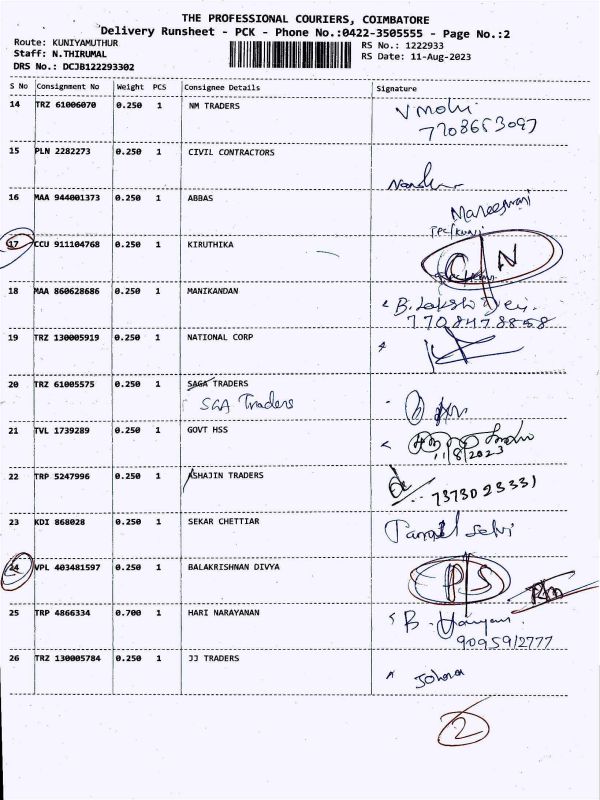 THE PROFESSIONAL COURIERS, COIMBATORE
Delivery Runsheet - PCK - Phone No.:0422-3505555 - Page No.:2
Route: KUNIYAMUTHUR
RS No.: 1222933
Staff: N.THIRUMAL
RS Date: 11-Aug-2023
DRS No.: DCJB122293302
S No Consignment No Weight PCS Consignee Details Signature
14 TRZ 61006070 0.250 1 NM TRADERS
15 PLN 2282273 0.250 1 CIVIL CONTRACTORS
16 MAA 944001373 0.250 1 ABBAS
Mareeswari
17 CCU 911104768 0.250 1 KIRUTHIKA
N
18 MAA 860628686 0.250 1 MANIKANDAN
7708478858
19 TRZ 130005919 0.250 1 NATIONAL CORP
20 TRZ 61005575 0.250 1 SAGA TRADERS
SGA Traders
21 TVL 1739289 0.250 1 GOVT HSS
11/8/2023
22 TRP 5247996 0.250 1 ASHAJIN TRADERS
7373023331
23 KDI 868028 0.250 1 SEKAR CHETTIAR
24 VPL 403481597 0.250 1 BALAKRISHNAN DIVYA
P S
25 TRP 4866334 0.700 1 HARI NARAYANAN
9095912777
26 TRZ 130005784 0.250 1 JJ TRADERS
2